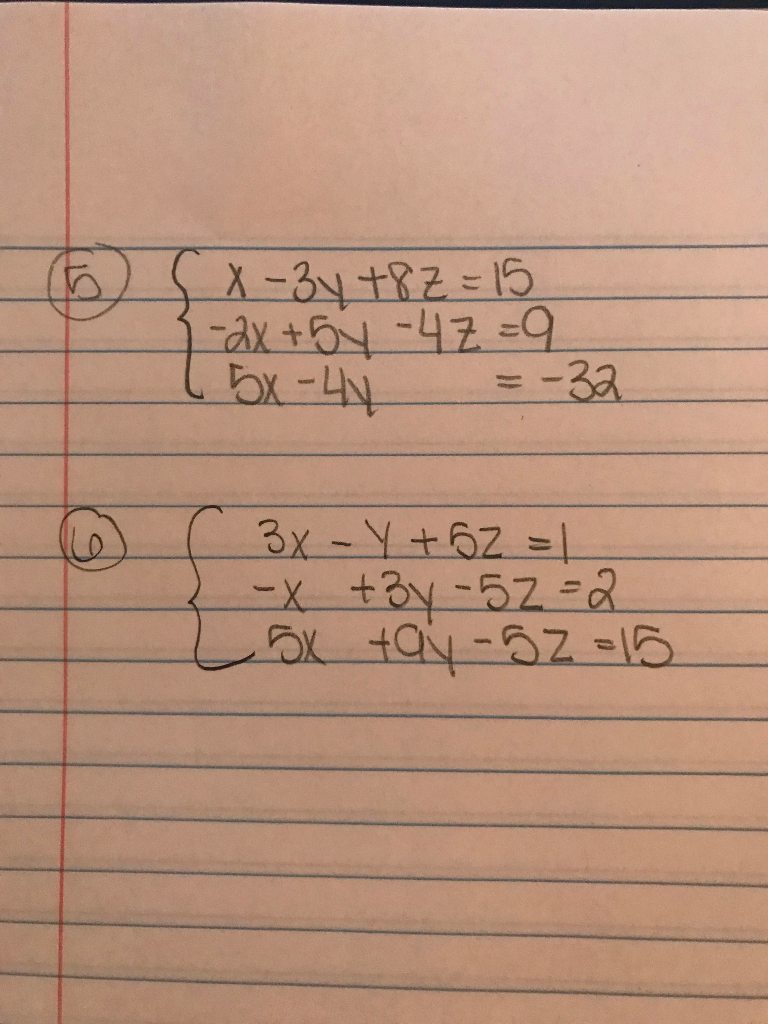 5 { x - 3y + 8z = 15
-2x + 5y - 4z = 9
5x - 4y = -32
6 { 3x - y + 5z = 1
-x + 3y - 5z = 2
5x + 9y - 5z = 15